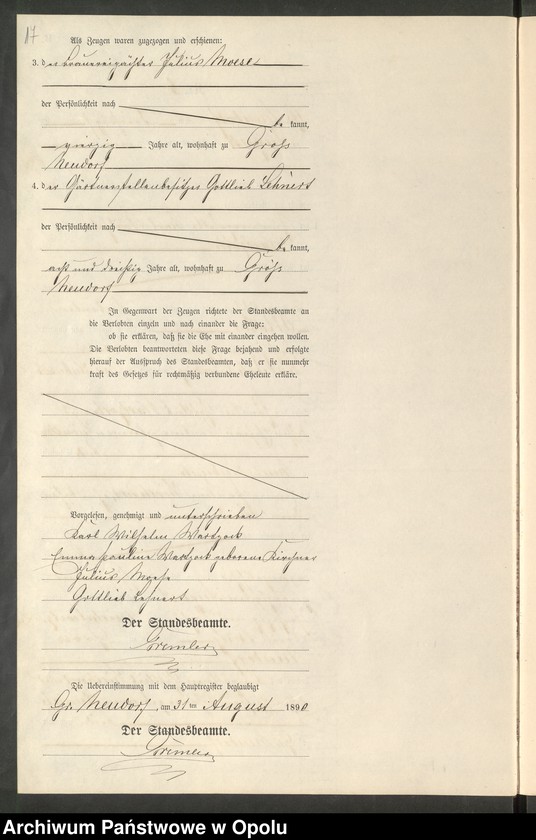 17
Als Zeugen waren zugezogen und erschienen:
3. der Brauereipächter Julius Moese
der Persönlichkeit nach
be kannt,
vierzig Jahre alt, wohnhaft zu Groß
Neudorf
4. der Gärtnerstellenbesitzer Gottlieb Lehnert
der Persönlichkeit nach
be kannt,
acht und dreißig Jahre alt, wohnhaft zu Groß
Neudorf
In Gegenwart der Zeugen richtete der Standesbeamte an
die Verlobten einzeln und nach einander die Frage:
ob sie erklären, daß sie die Ehe mit einander eingehen wollen.
Die Verlobten beantworteten diese Frage bejahend und erfolgte
hierauf der Ausspruch des Standesbeamten, daß er sie nunmehr
kraft des Gesetzes für rechtmäßig verbundene Eheleute erkläre.
Vorgelesen, genehmigt und unterschrieben
Karl Wilhelm
Emma Pauline geborene Kirchner
Julius Moese
Gottlieb Lehnert
Der Standesbeamte.
Die Uebereinstimmung mit dem Hauptregister beglaubigt
Gr. Neudorf, am 31ten August 1890
Der Standesbeamte.
Archiwum Państwowe w Opolu